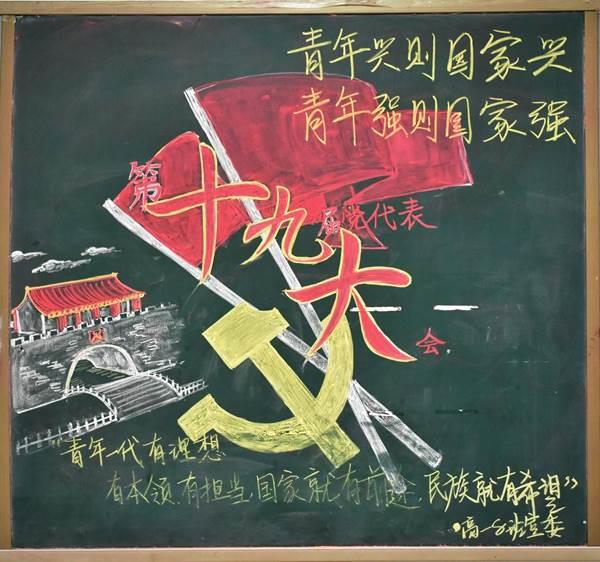 青年兴则国家兴
青年强则国家强
第十九届党代表大会
"青年一代有理想
有本领,有担当,国家就有前途,民族就有希望"
高一8班宣委